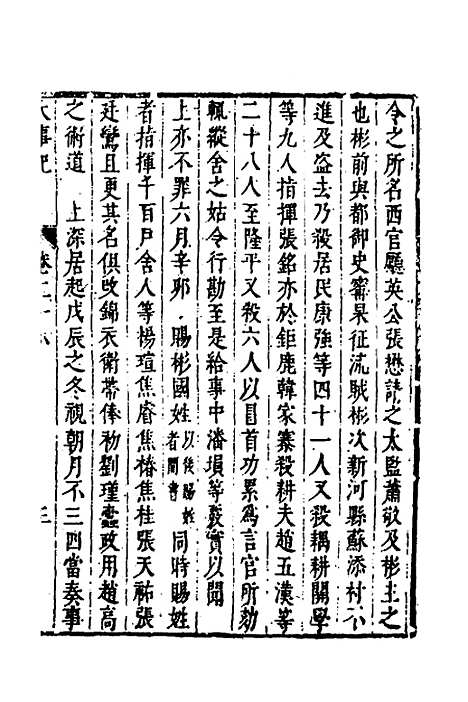 令之所名西官廳英公張懋請之太監蕭敬及彬主之
也彬前與都御史甯杲征流賊彬次新河縣蘇添村不
進及盗去乃殺居民康強等四十一人又殺耦耕關學
等九人指揮張銘亦於鉅鹿韓家寨殺耕夫趙五漢等
二十八人至隆平又殺六人以冒首功累爲言官所劾
輒縱舍之姑令行勘至是給事中潘塤等覈實以聞
上亦不罪六月辛卯 賜彬國姓以後賜姓者開書同時賜姓
者指揮千百戶舍人等楊瑄焦睿焦椿焦桂張天祐張
廷鸞且更其名俱改錦衣衛帶俸初劉瑾蠹政用趙高
之術道 上深居起戊辰之冬視朝月不三四當奏事
大事記 卷二十八 三